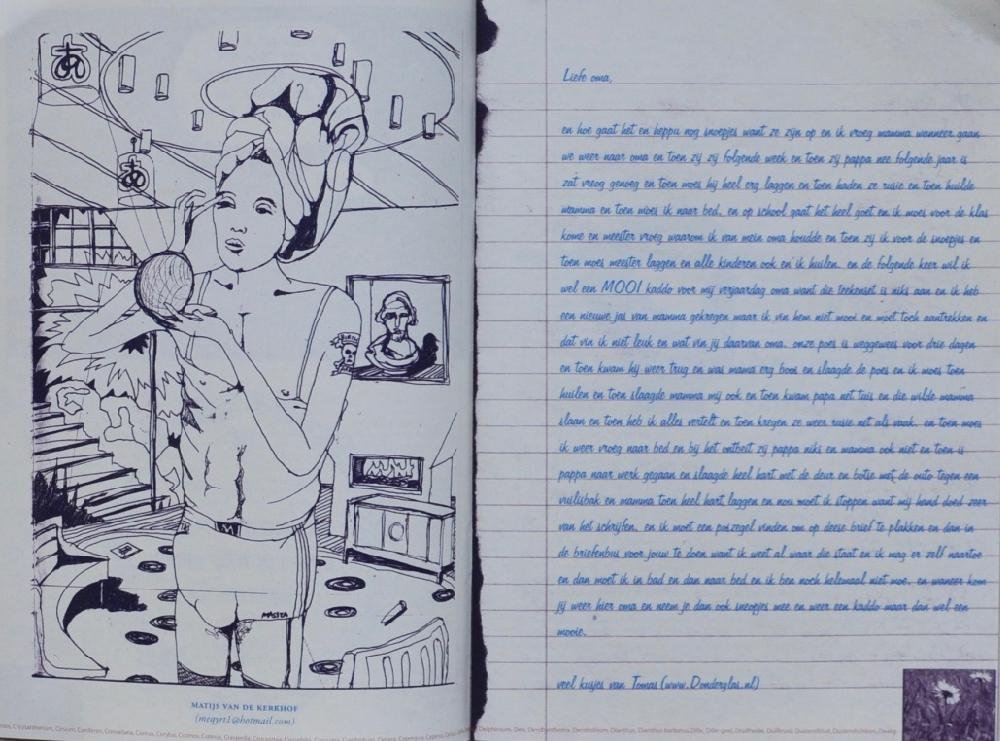 あ
あ
MASTA
MATIJS VAN DE KERKHOF
(meqyrt1@hotmail.com)
Liefe oma,
en hoe gaat het en heppu nog snoepjes want ze zijn op en ik vroeg mamma wanneer gaan
we weer naar oma en toen zij zij folgende week en toen zij pappa nee folgende jaar is
zat vreog genoeg en toen moes hij heel erg laggen en toen haden ze rusie en toen huilde
mamma en toen moes ik naar bed. en op school gaat het heel goet en ik moes voor de klas
kome en meester vroeg waarom ik van mein oma houdde en toen zij ik voor de snoepjes en
toen moes meester laggen en alle kinderen ook en ik huilen. en de folgende keer wil ik
wel een MOOI kaddo voor mij verjaardag oma want die teekenset is niks aan en ik heb
een nieuwe jas van mamma gekregen maar ik vin hem niet mooi en moet toch aantrekken en
dat vin ik niet leuk en wat vin jij daarvan oma. onze poes is weggewees voor drie dagen
en toen kwam hij weer trug en was mama erg boos en slaagde de poes en ik moes toen
huilen en toen slaagde mamma mij ook en toen kwam papa net tuis en die wilde mamma
slaan en toen heb ik alles vertelt en toen kregen ze weer rusie net als vaak. en toen moes
ik weer vroeg naar bed en bij het ontbeit zij pappa niks en mamma ook niet en toen is
pappa naar werk gegaan en slaagde heel hart met de deur en botse met de outo tegen een
vuilisbak en mamma toen heel hart laggen en nou moet ik stoppen want mij hand doed zeer
van het schrijfen. en ik moet een poszegel vinden om op deese brief te plakken en dan in
de briefenbus voor jouw te doen want ik weet al waar die staat en ik mag er zelf naartoe
en dan moet ik in bad en dan naar bed en ik ben noch helemaal niet moe. en waneer kom
jij weer hier oma en neem je dan ook sneopjes mee en weer een kaddo maar dan wel een
mooie.
veel kusjes van Tomas (www.Donderglas.nl)